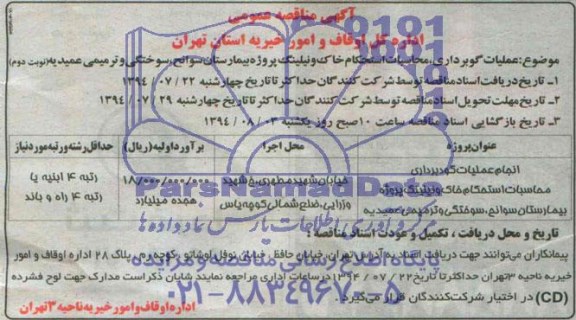 آگهی مناقصه عمومی
اداره کل اوقاف و امور خیریه استان تهران
موضوع: عملیات گودبرداری، محاسبات استحکام خاک و نیلینگ پروژه بیمارستان سوانح، سوختگی و ترمیمی عمیدیه (نوبت دوم)
۱- تاریخ دریافت اسناد مناقصه توسط شرکت کنندگان حداکثر تا تاریخ چهارشنبه ۲۲ / ۰۷ / ۱۳۹۴
۲- تاریخ مهلت تحویل اسناد مناقصه توسط شرکت کنندگان حداکثر تا تاریخ چهارشنبه ۲۹ / ۰۷ / ۱۳۹۴
۳- تاریخ بازگشایی اسناد مناقصه ساعت ۱۰ صبح روز یکشنبه ۰۳ / ۰۸ / ۱۳۹۴
عنوان پروژه محل اجرا برآورد اولیه (ریال) حداقل رشته و رتبه مورد نیاز
انجام عملیات گودبرداری
محاسبات استحکام خاک و نیلینگ پروژه
بیمارستان سوانح، سوختگی و ترمیمی عمیدیه
خیابان شهید مطهری، خ شهید
ورزایی، ضلع شمالی کوچه یاس
۱۸/۰۰۰/۰۰۰/۰۰۰
هجده میلیارد
رتبه ۴ ابنیه یا
رتبه ۴ راه و باند
تاریخ و محل دریافت، تکمیل و عودت اسناد مناقصه:
پیمانکاران می‌توانند جهت دریافت اسناد به آدرس تهران، خیابان حافظ، خیابان نوفل لوشاتو، کوچه رم، پلاک ۲۸ اداره اوقاف و امور
خیریه ناحیه ۳ تهران حداکثر تا تاریخ ۲۲ / ۰۷ / ۱۳۹۴ در ساعات اداری مراجعه نمایند شایان ذکر است مدارک جهت لوح فشرده
(CD) در اختیار شرکت کنندگان قرار می‌گیرد.
اداره اوقاف و امور خیریه ناحیه ۳ تهران
ParsNamadData
پایگاه اطلاع رسانی مناقصه و مزایده
۰۲۱-۸۸۳۴۹۶۷۰-۵